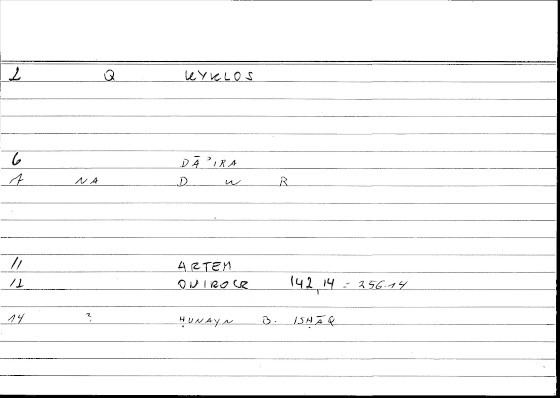 1 Q KYKLOS
6 DĀʾIRA
7 NA D W R
11 ARTEM
12 ONIROCR 142,14 = 256.14
14 ? ḤUNAYN B. ISḤĀQ